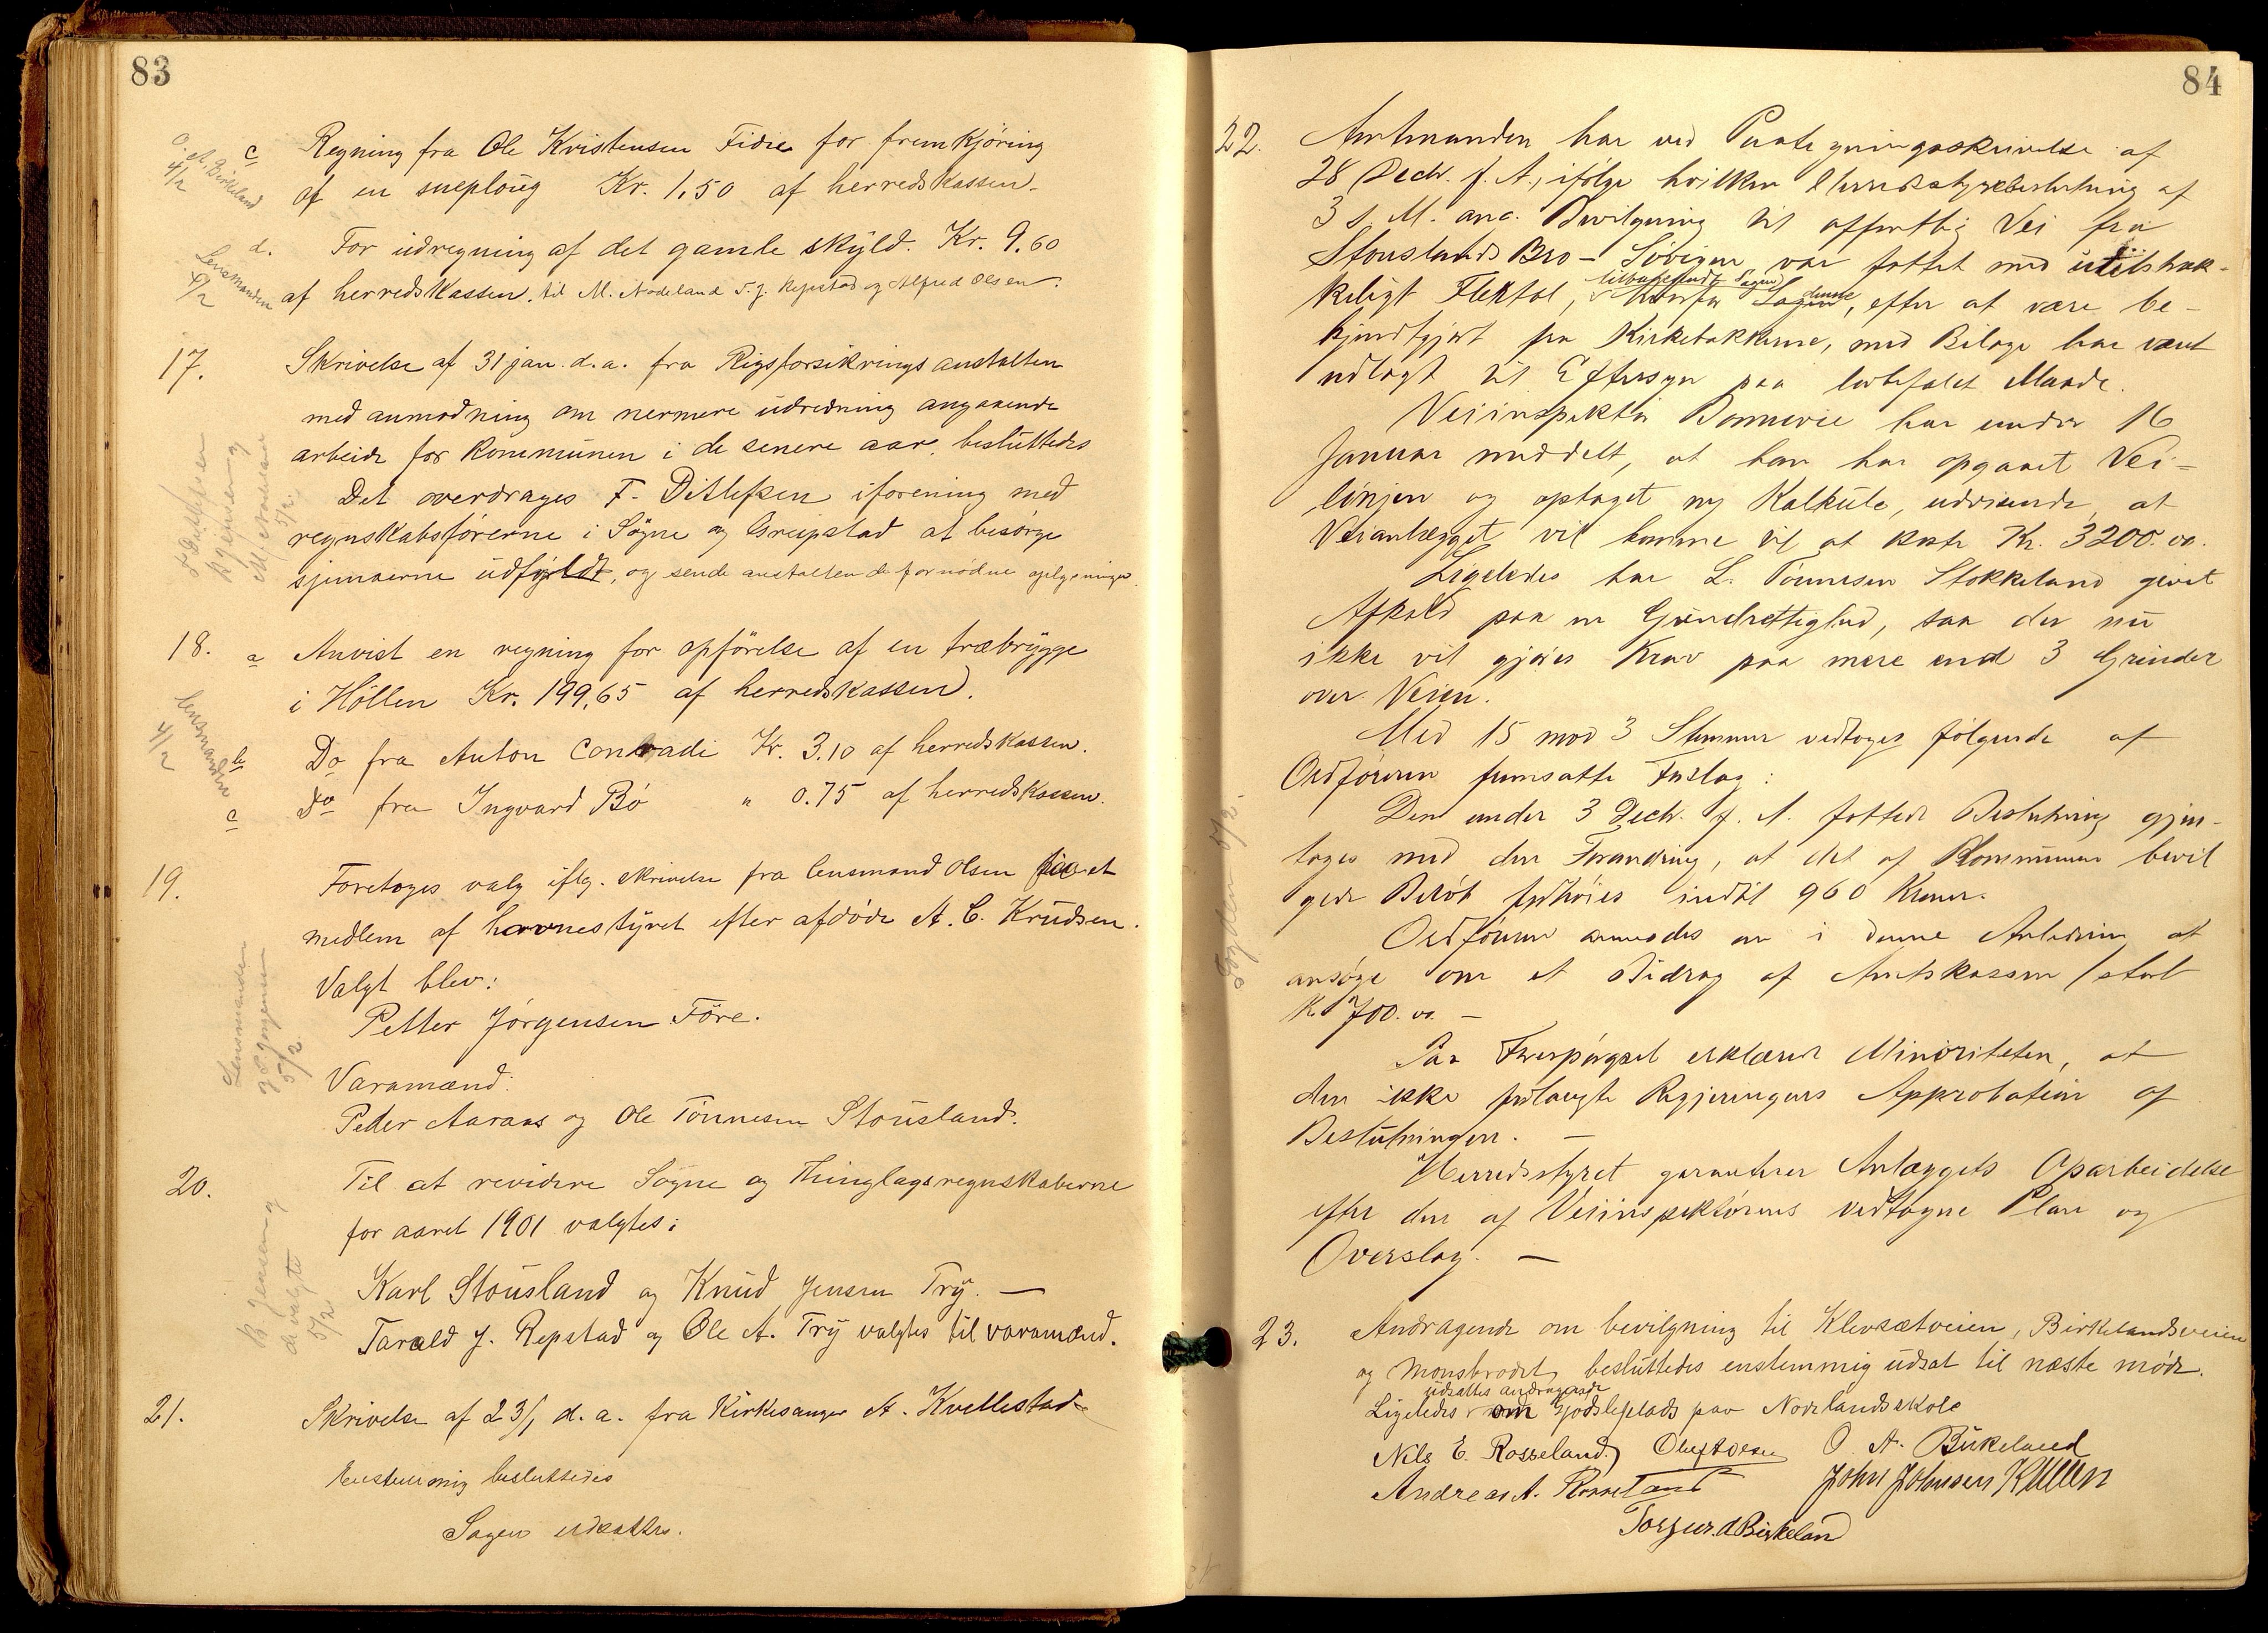 83
O. A. Birkeland
4/2
c Regning fra Ole Kristensen Fidie for fremkjöring
af en sneploug Kr. 1,50 af herredskassen.
Lensmanden
4/2
d. For udregning af det gamle skyld. Kr. 9.60
af herredskassen. til M. Nodeland T. J. Repstad og Alfred Olsen.
17. Skrivelse af 31 jan. d.a. fra Rigsforsikringsanstalten
med anmodning om nermere udredning angaaende
arbeide for kommunen i de senere aar, besluttedes
Det overdrages F. Ditlefsen iforening med
regnskabsförerne i Sögne og Greipstad at besörge
sjemaerne udfyldt, og sende anstalten de fornödne oplysninger.
F Ditlefsen
5/2
18. a Anvist en regning for opförelse af en træbrygge
i Höllen Kr. 199,65 af herredskassen.
Lensmanden
4/2
b Do fra Anton Conradi Kr. 3.10 af herredskassen.
c Do fra Ingvard Bö " 0.75 af herredskassen.
19. Foretoges valg iflg. skrivelse fra lensmand Olsen paa et
medlem af havnestyret efter afdöde A. C. Knudsen.
Valgt blev:
Petter Jörgensen Före.
Varamænd:
Peder Aaraas og Ole Tönnesen Stousland.
Lensmanden
P Jörgensen
5/2
20. Til at revidere Sogne og Thinglagsregnskaberne
for aaret 1901 valgtes:
Karl Stousland og Knud Jensen Try. —
Tarald J. Repstad og Ole A. Try valgtes til varamænd.
K Jensen og
de valgte
5/2
21. Skrivelse af 23/1 d.a. fra Kirkesanger A. Kvellestad
Enstemmig besluttedes
Sagen udsattes.
84
22. Amtmanden har ved Paategningsskrivelse af
28 Decbr. f. A., ifölge hvilken Herredsstyrebeslutning af
3 s. M. ang. Bevilgning til offentlig Vei fra
Stouslands Bro - Sövigen var fattet med utilstræk-
keligt Flertal, tilbagesendt Sagen
denne, efter at være be-
kjendtgjort paa Kirkebakkerne, med Bilage har været
udlagt til Eftersyn paa lovbefalet Maade.
Veiinspektör Bonnevie har under 16
Januar meddelt, at han har opgaaet Vei-
linjen og optaget ny Kalkule, udvisende at
Veianlægget vil komme til at koste Kr. 3200.00.
Ligeledes har L. Tönnesen Stokkeland givet
Afkald paa en Grindrettighed, saa der nu
ikke vil gjöres Krav paa mere end 3 Grinder
over Veien.
Med 15 mod 3 Stemmer vedtoges fölgende af
Ordföreren fremsatte Forslag:
Den under 3 Decbr. f. A. fattede Beslutning gjen-
tages med den Forandring, at det af Kommunen bevil
gede Belöb forhöies indtil 960 Kroner.
Ordföreren anmodes om i denne Anledning at
ansöge om et Bidrag af Amtskassen stort
Kr 700.00. —
Paa Forespörgsel erklærede Minoriteten, at
den ikke forlangte Regjeringens Approbation af
Beslutningen. —
Herredsstyret garanterer Anlæggets Oparbeidelse
efter den af Veiinspektörens vedtagne Plan og
Overslag. —
5/2
23. Andragende om bevilgning til Klevsætveien, Birkelandsveien
og Monsbrodet, besluttedes enstemmig udsat til næste möde.
udsattes andragende
Ligeledes om Gjödslefplads paa Norlandsskole
Nils E. Rosseland. Oluf Olsen O. A. Birkeland
Andreas A. Rosseland John Johnsen Kullen
Torjus. A Birkeland